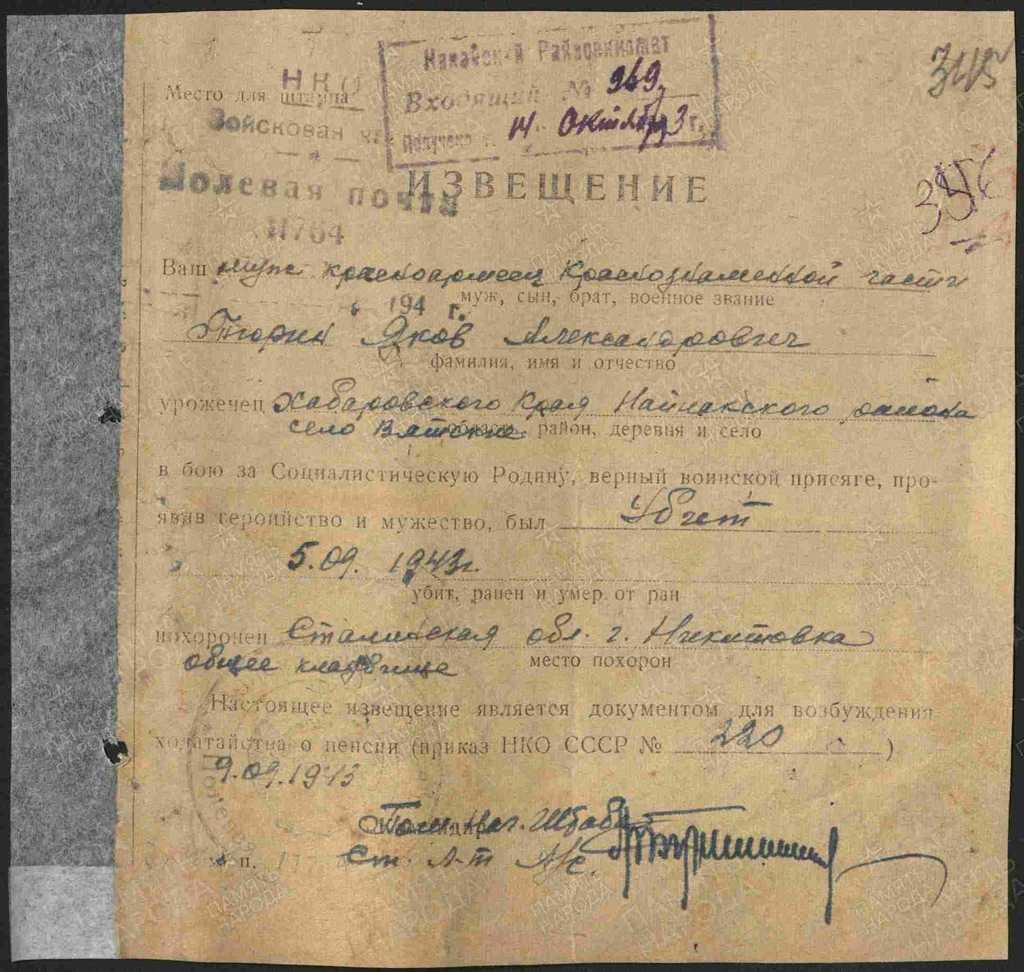 Райвоенкомат
Входящий № 969
Получено 14 Октября 3 г.
3115
НКО
Место для штампа
Войсковая
Полевая почта
11764
ИЗВЕЩЕНИЕ
Ваш муж красноармеец Краснознаменной части
194 г.
муж, сын, брат, военное звание
Яков Александрович
фамилия, имя и отчество
уроженец Хабаровского Края района
село Вятское
область, район, деревня и село
в бою за Социалистическую Родину, верный воинской присяге, про-
явив геройство и мужество, был Убит
5.09. 1943г.
убит, ранен и умер от ран
похоронен Сталинская обл. г. Никитовка
общее кладбище
место похорон
Настоящее извещение является документом для возбуждения
ходатайства о пенсии (приказ НКО СССР № 220 )
9.09.1943
Пом. Нач. Штаба
м. п.
Ст. Л-т А/с.
ПАМЯТЬ НАРОДА